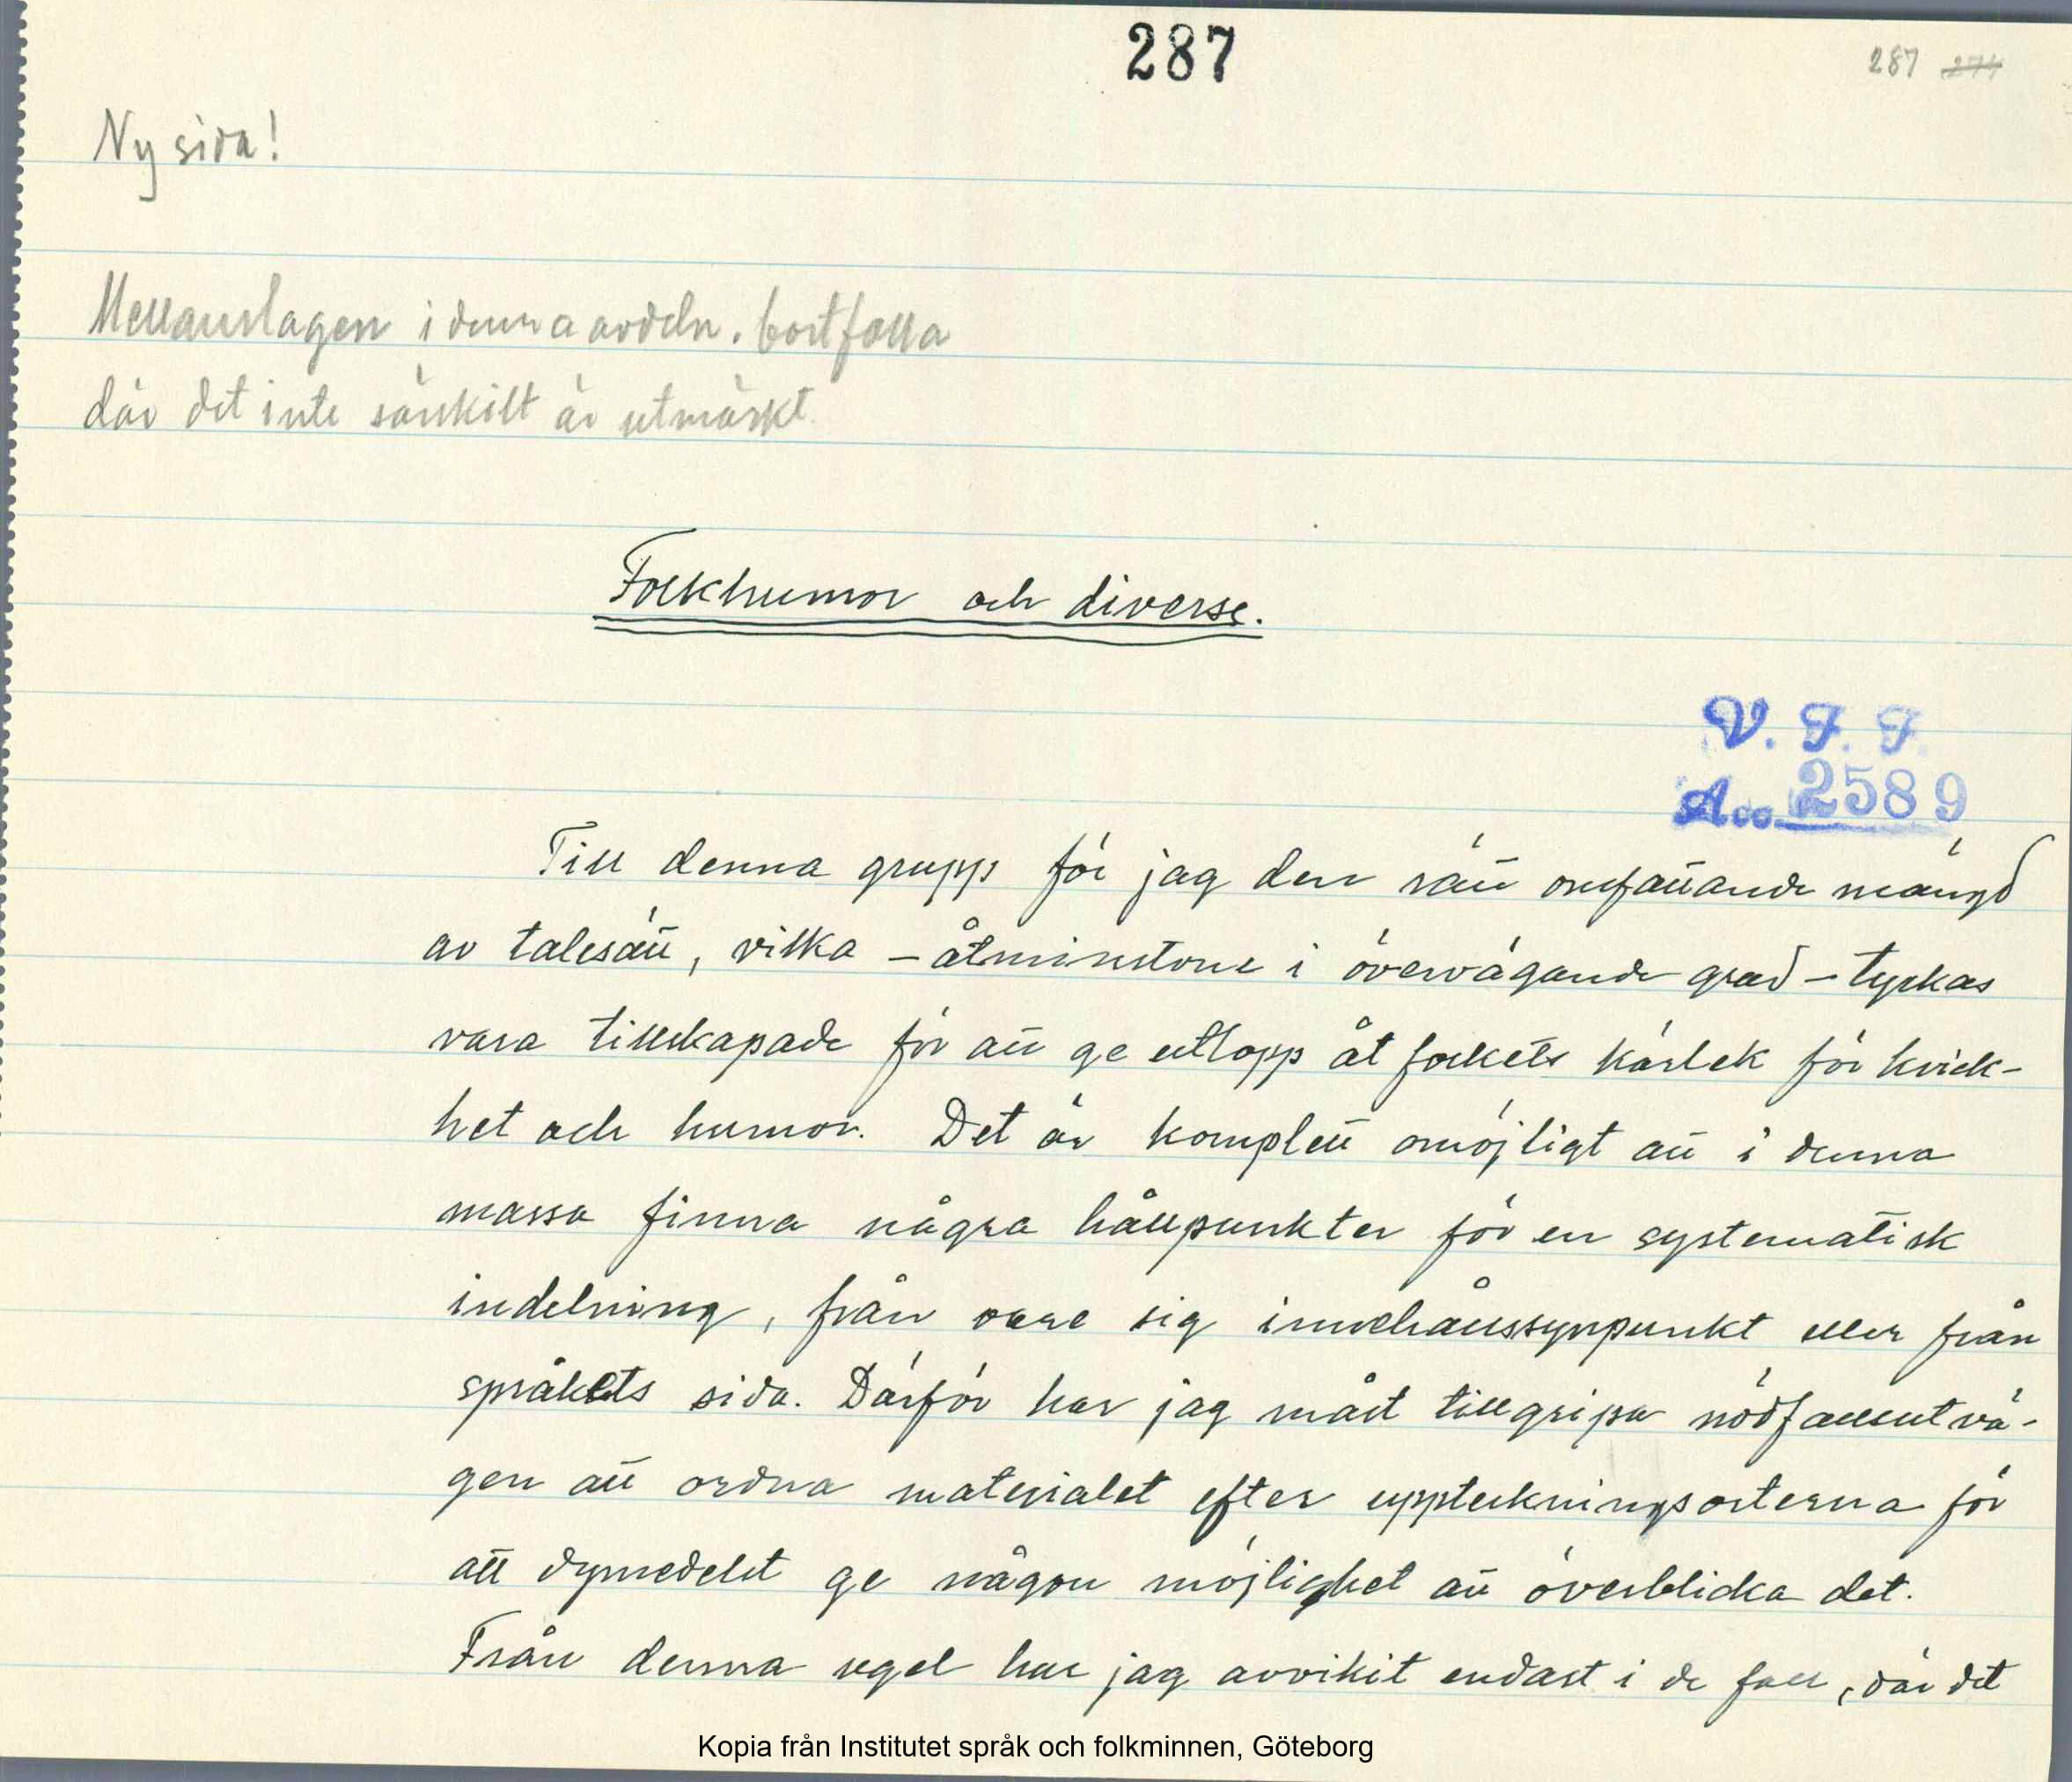 287
287 274
Ny sida!
Mellanslagen i denna avdeln. bortfalla
där det inte särskilt är utmärkt.
Folkhumor och diverse.
V. F. F.
Acc. 2589
Till denna grupp för jag den rätt omfattande mängd
av talesätt, vilka – åtminstone i övervägande grad – tyckas
vara tillskapade för att ge utlopp åt folkets kärlek för kvick-
het och humor. Det är komplett omöjligt att i denna
massa finna några hållpunkter för en systematisk
indelning, från vare sig innehållssynpunkt eller från
språkets sida. Därför har jag måst tillgripa nödfallsutvä-
gen att ordna materialet efter uppteckningsorterna för
att dymedelst ge någon möjlighet att överblicka det.
Från denna regel har jag avvikit endast i de fall, där det
Kopia från Institutet språk och folkminnen, Göteborg